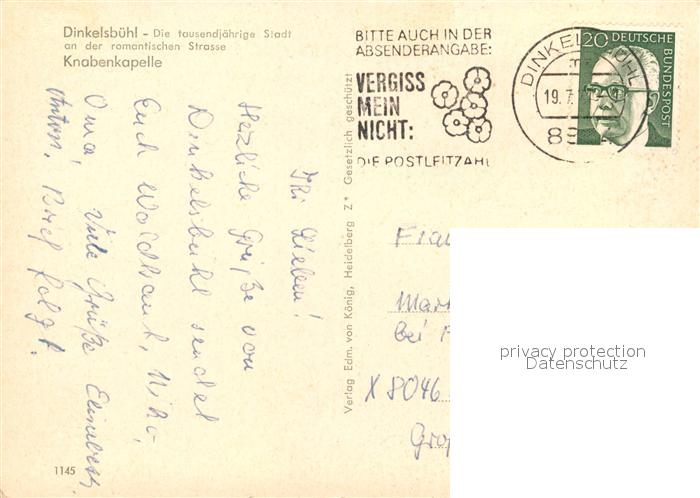 Dinkelsbühl - Die tausendjährige Stadt
an der romantischen Strasse
Knabenkapelle
BITTE AUCH IN DER
ABSENDERANGABE:
VERGISS
MEIN
NICHT:
DIE POSTLEITZAHL
DINKEL
19.7.
20 DEUTSCHE
BUNDESPOST
Ihr Lieben!
Herzliche Grüße von
Dinkelsbühl sendet
Euch Waldtraut, Niko,
Oma, Viele Grüße Elisabeth,
Anton. Brief folgt.
Verlag Edm. von König, Heidelberg Z* Gesetzlich geschützt
Bei
X 8046
1145
privacy protection
Datenschutz